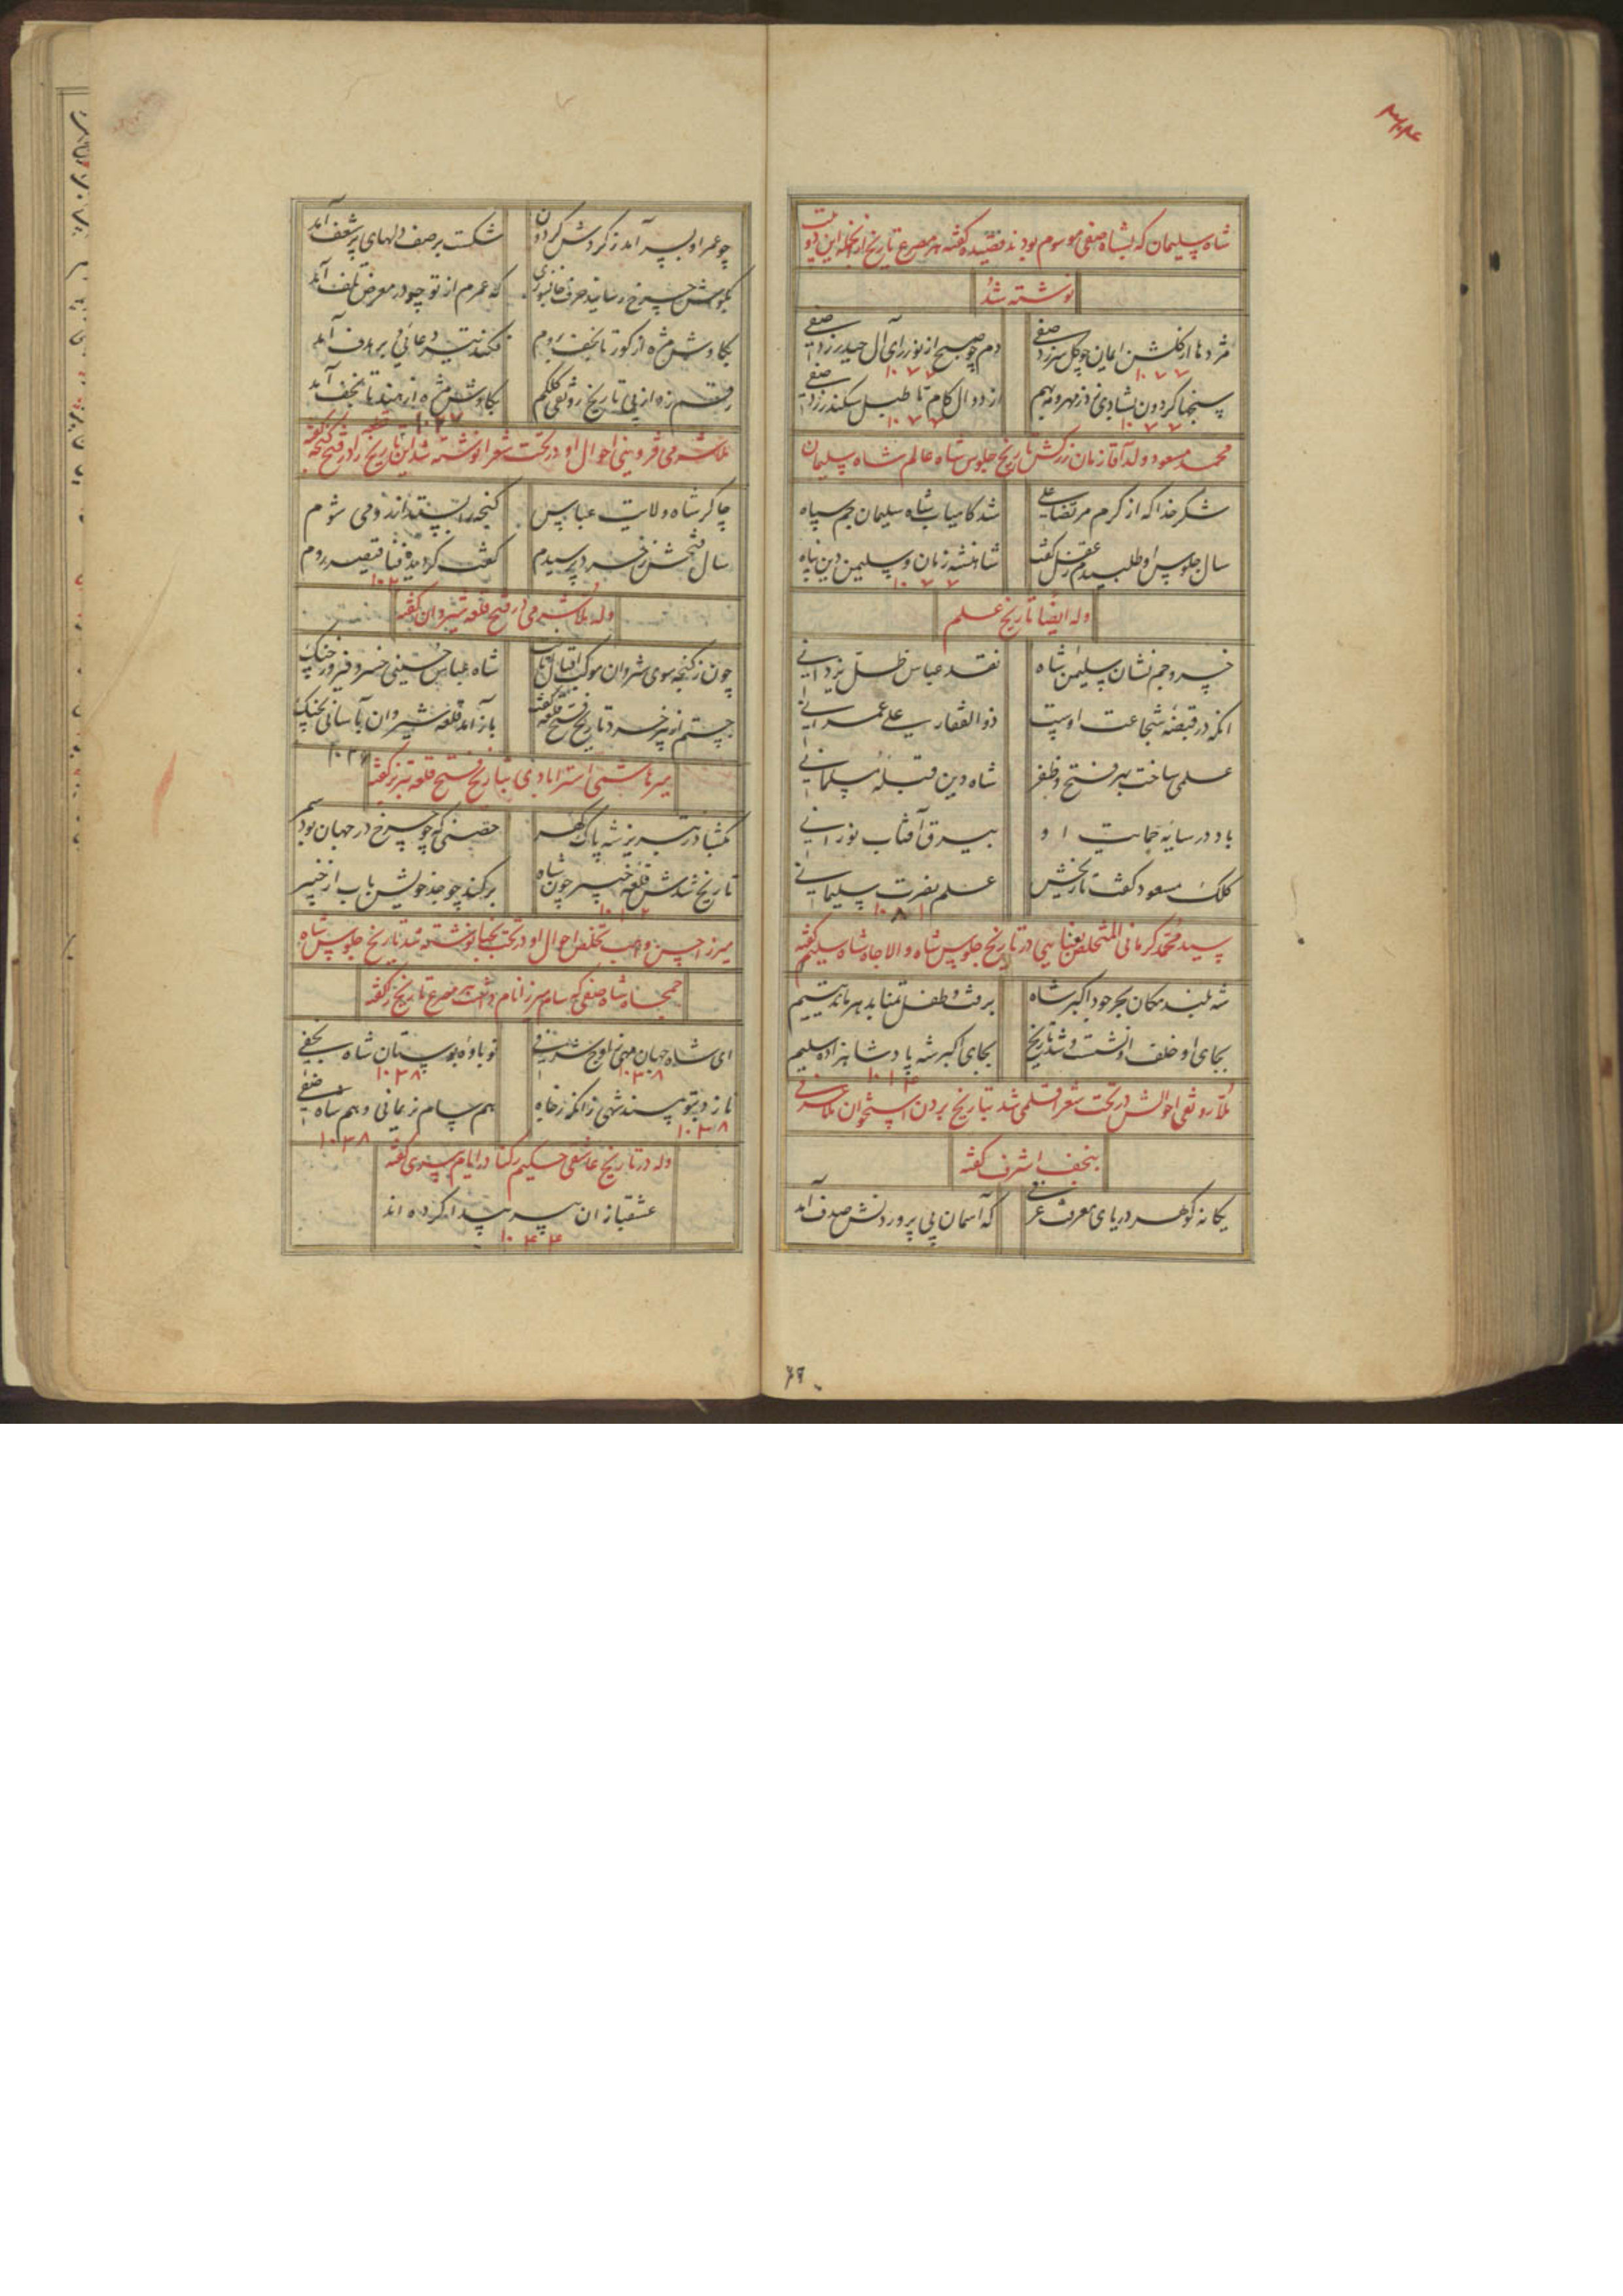 شاه سلیمان که بشاه صفی موسوم بودند قصیده گفته هر مصرع تاریخ از انجمله این دو بیت
نوشته شد
مژدها از گلشن ایمان چو گل سر زد صفی دم چو صبح از نور رای آل حیدر زد صفی
۱۰۷۷ ۱۰۷۷
سنجها گردون بشادی زد ز مهر و مه بهم از دوال کام تا طبل سکندر زد صفی
۱۰۷۷ ۱۰۷۷
محمد مسعود ولد آقا زمان زرکش تاریخ جلوس شاه عالم شاه سلیمان
شکر خدا که از کرم مرتضا علی شد کامیاب شاه سلیمان جم سپاه
سال جلوس او طلبیدم ز عقل گفت شاهنشه زمان و سلیمن دین پناه
۱۰۷۷
وله ایضا تاریخ علم
خسرو جم نشان سلیمن شاه نقد عباس ظل یزدانی
انکه در قبضه شجاعت اوست ذوالفقار علی عمرانی
علمی ساخت بهر فتح و ظفر شاه دین قبله مسلمانی
باد در سایه حمایت او بیرق آفتاب نورانی
کلک مسعود گفت تاریخش علم نصرت سلیمانی
۱۰۸۱
سید محمد کرمانی المتخلص بفنایی در تاریخ جلوس شاه والاجاه شاه سلیم گفته
شه بلند مکان بحر جود اکبر شاه برفت و طفل تمنا بدهر ماند یتیم
بجای او خلف او نشست و شد تاریخ بجای اکبر شه پادشاهزاده سلیم
۱۰۱۴
ملا رونقی احوالش در تحت شعرا قلمی شد بتاریخ بردن استخوان ملا عرفی
بنجف اشرف گفته
یکانه گوهر دریای معرفت عرفی که آسمان پی پروردنش صدف آمد
۶۹
چو عمر او بسر آمد ز گردش گردون شکست بر صف دلهای پر شعف آمد
بگوش چرخ رسانید حرف جانسوزی که عمرم از تو چو در معرض تلف آمد
بکاوش مژه از گور تا نجف بروم فکند تیر دعائی و بر هدف آمد
رقم زد از پی تاریخ رونقی کلکم بکاوش مژه از هند تا نجف آمد
۱۰۲۷
ملا شرمی قزوینی احوال او در تحت شعرا نوشته شد این تاریخ را در فتح گنجه گفته
چاکر شاه ولایت عباس گنجه را بستد از رومی شوم
سال فتحش ز خرد پرسیدم گفت گردید فنا قیصر روم
وله ملا شرمی در فتح قلعه شیروان گفته
چون ز گنجه سوی شروان موکب اقبال تاخت شاه عباس حسینی خسرو فیروز جنگ
جستم از پیر خرد تاریخ فتح قلعه گفت باز آمد قلعه شیروان بآسانی بچنگ
میر هاشمی استرابادی بتاریخ فتح قلعه تبریز گفته
بگشا در تبریز شه پاک گهر حصنی که چو چرخ در جهان بود سمر
تاریخ شدش قلعه خیبر چون شاه برکند چو جد خویش باب از خیبر
میرزا حسن واهب تخلص احوال او در تحت نجبا نوشته شد تاریخ جلوس شاه
جمجاه شاه صفی که سام میرزا نام داشت هر مصرع تاریخ گفته
ای شاه جهان مهی ز اوج شرفی نو باوه بوستان شاه نجفی
۱۰۳۸ ۱۰۳۸
نازد بتو مسند شهی زانکه ز جاه هم سام زمانی و هم شاه صفی
۱۰۳۸ ۱۰۳۸
وله در تاریخ عاشقی حکیم رکنا در ایام پیری گفته
عشقبازان پسر پیدا کرده اند
۱۰۴۴